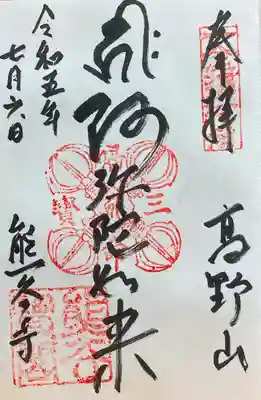 奉拝
高野山
阿弥陀如来
令和五年
七月六日
熊谷寺